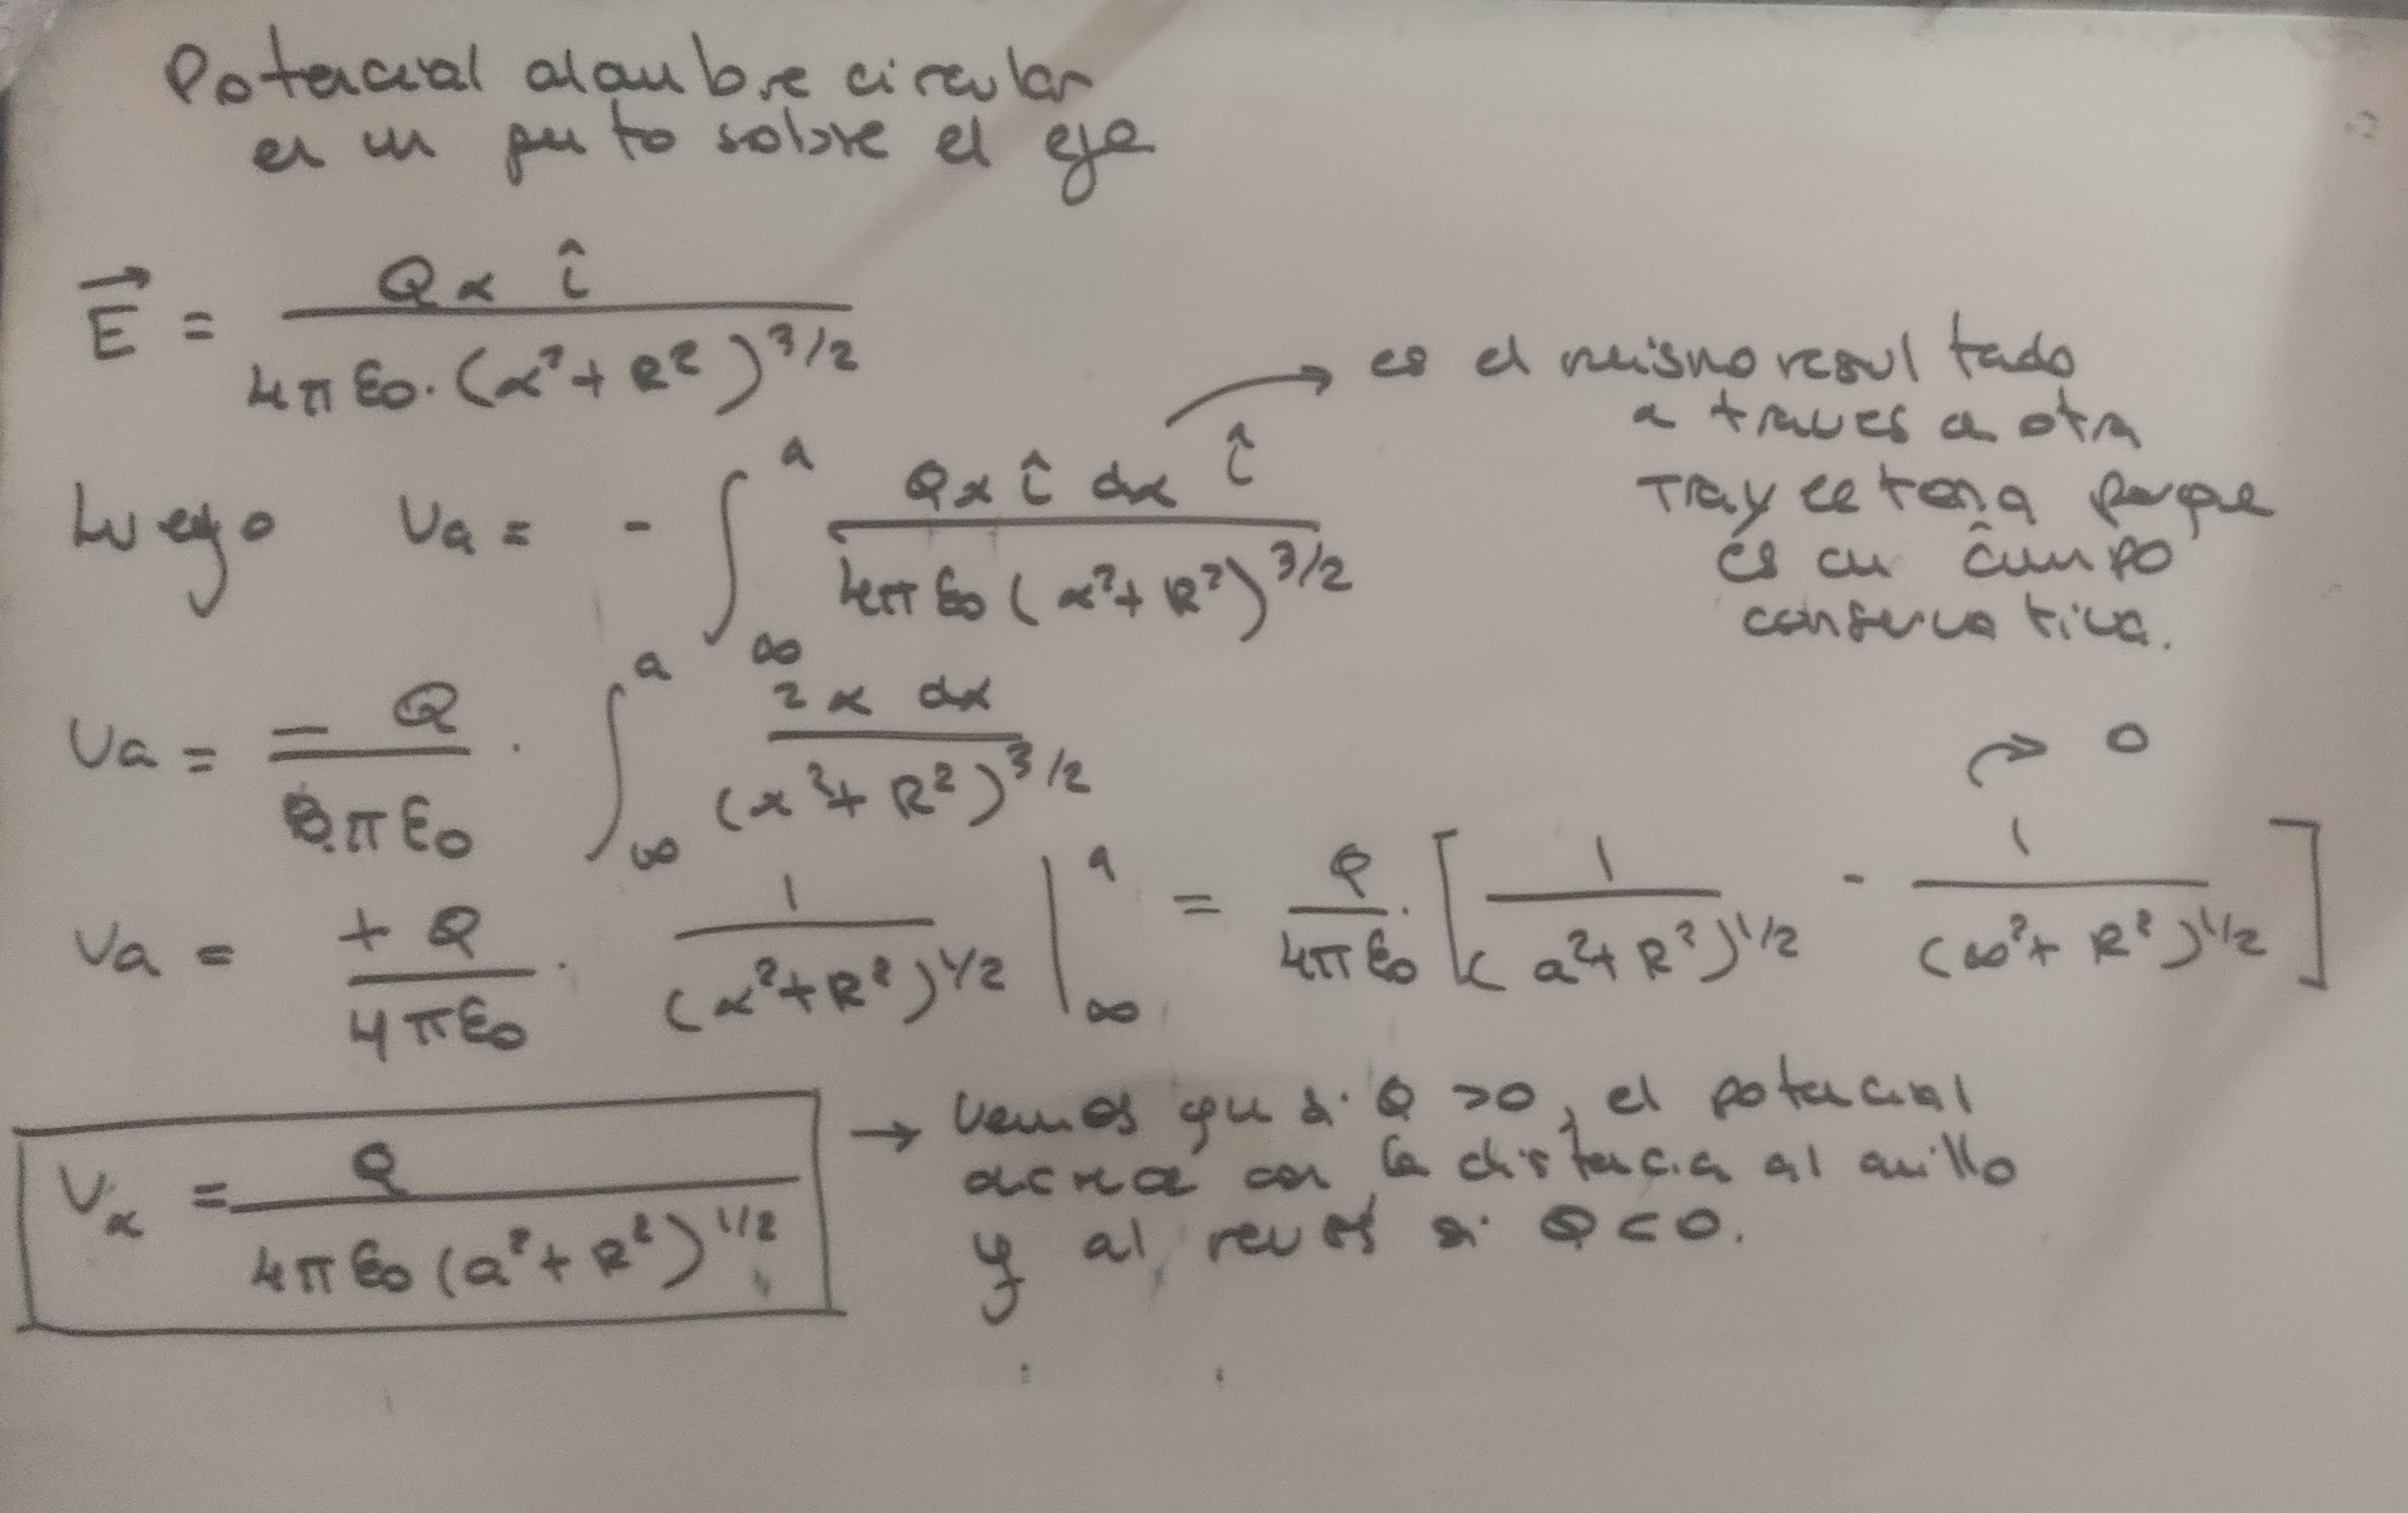 Potencial alambre circular
en un punto sobre el eje
E⃗ = Q x î / 4π ε0 · (x² + R²)^3/2
→ es el mismo resultado
a traves a otra
trayectoria porque
es un campo
conservativa.
Luego Va = - ∫_∞^a Q x î dx î / 4π ε0 (x² + R²)^3/2
Va = - Q / 8π ε0 · ∫_∞^a 2 x dx / (x² + R²)^3/2
Va = + Q / 4π ε0 · 1 / (x² + R²)^1/2 |_∞^a = Q / 4π ε0 · [ 1 / (a² + R²)^1/2 - 1 / (∞² + R²)^1/2 ] → 0
Vx = Q / 4π ε0 (a² + R²)^1/2
→ Vemos que si Q > 0, el potencial
decrece con la distancia al anillo
y al revés si Q < 0.